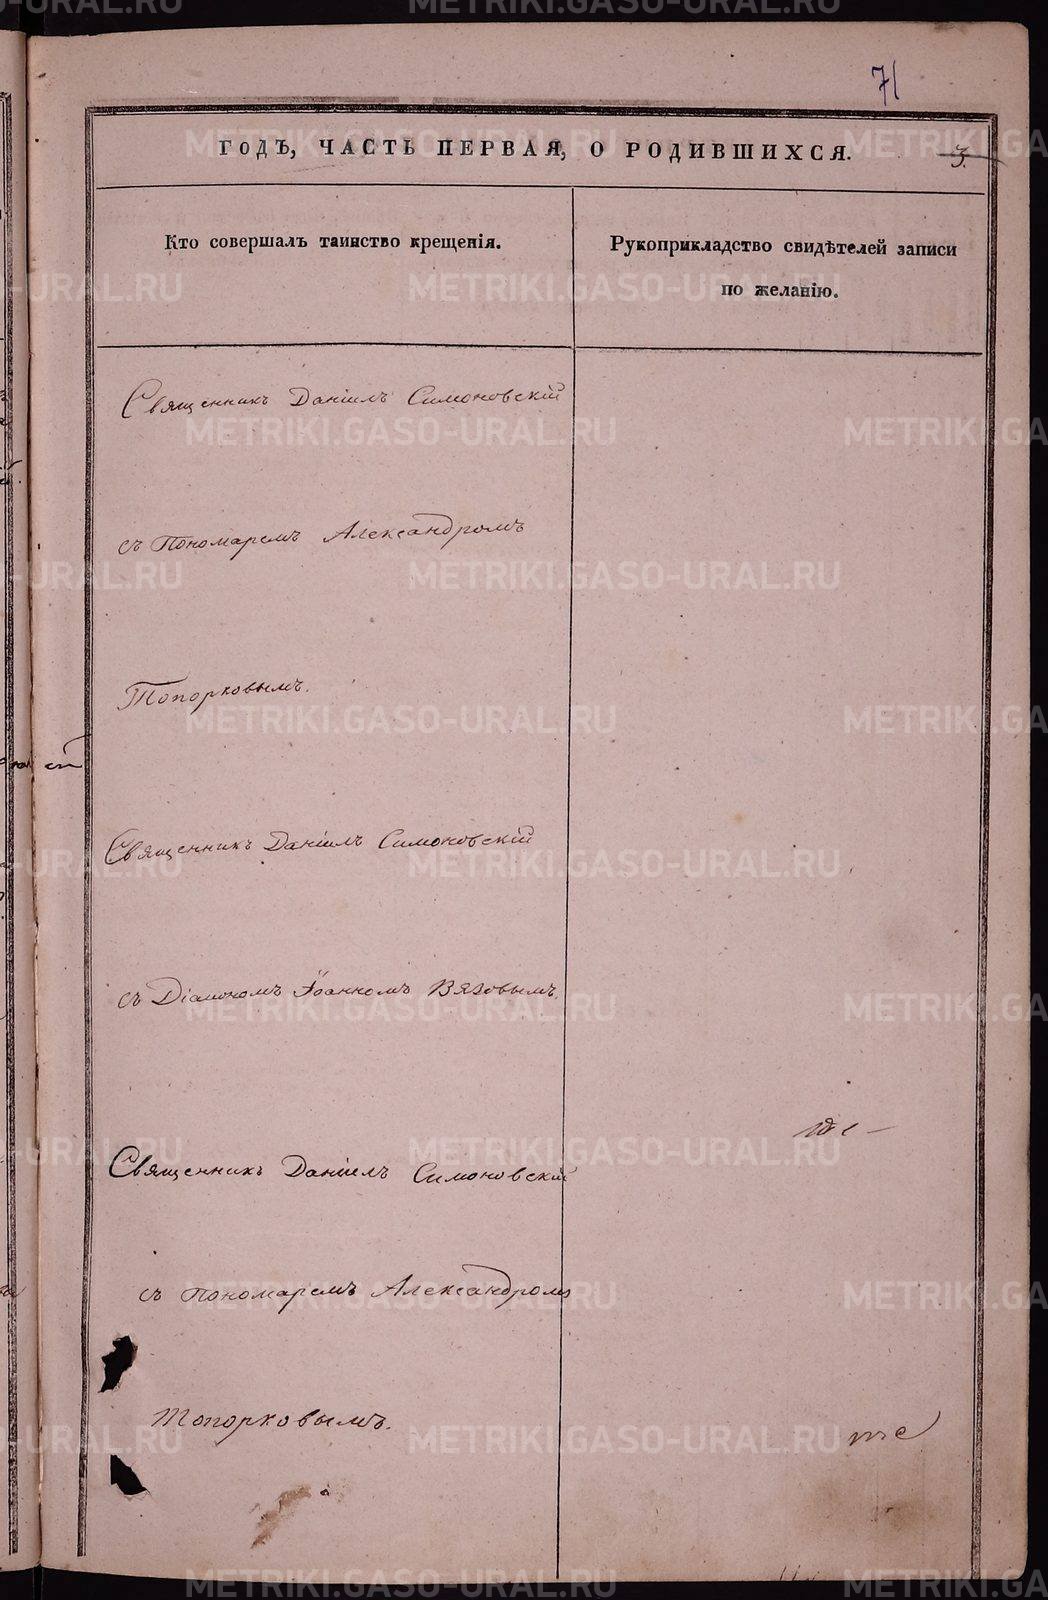 71
ГОДЪ, ЧАСТЬ ПЕРВАЯ, О РОДИВШИХСЯ.
3.
Кто совершалъ таинство крещенія.
Рукоприкладство свидѣтелей записи
по желанію.
Священникъ Даніилъ Симоновскій
съ Пономаремъ Александромъ
Топорковымъ.
Священникъ Даніилъ Симоновскій
съ Діакономъ Іоанномъ Вязовымъ.
Священникъ Даніилъ Симоновскій
съ пономаремъ Александромъ
Топорковымъ.
METRIKI.GASO-URAL.RU